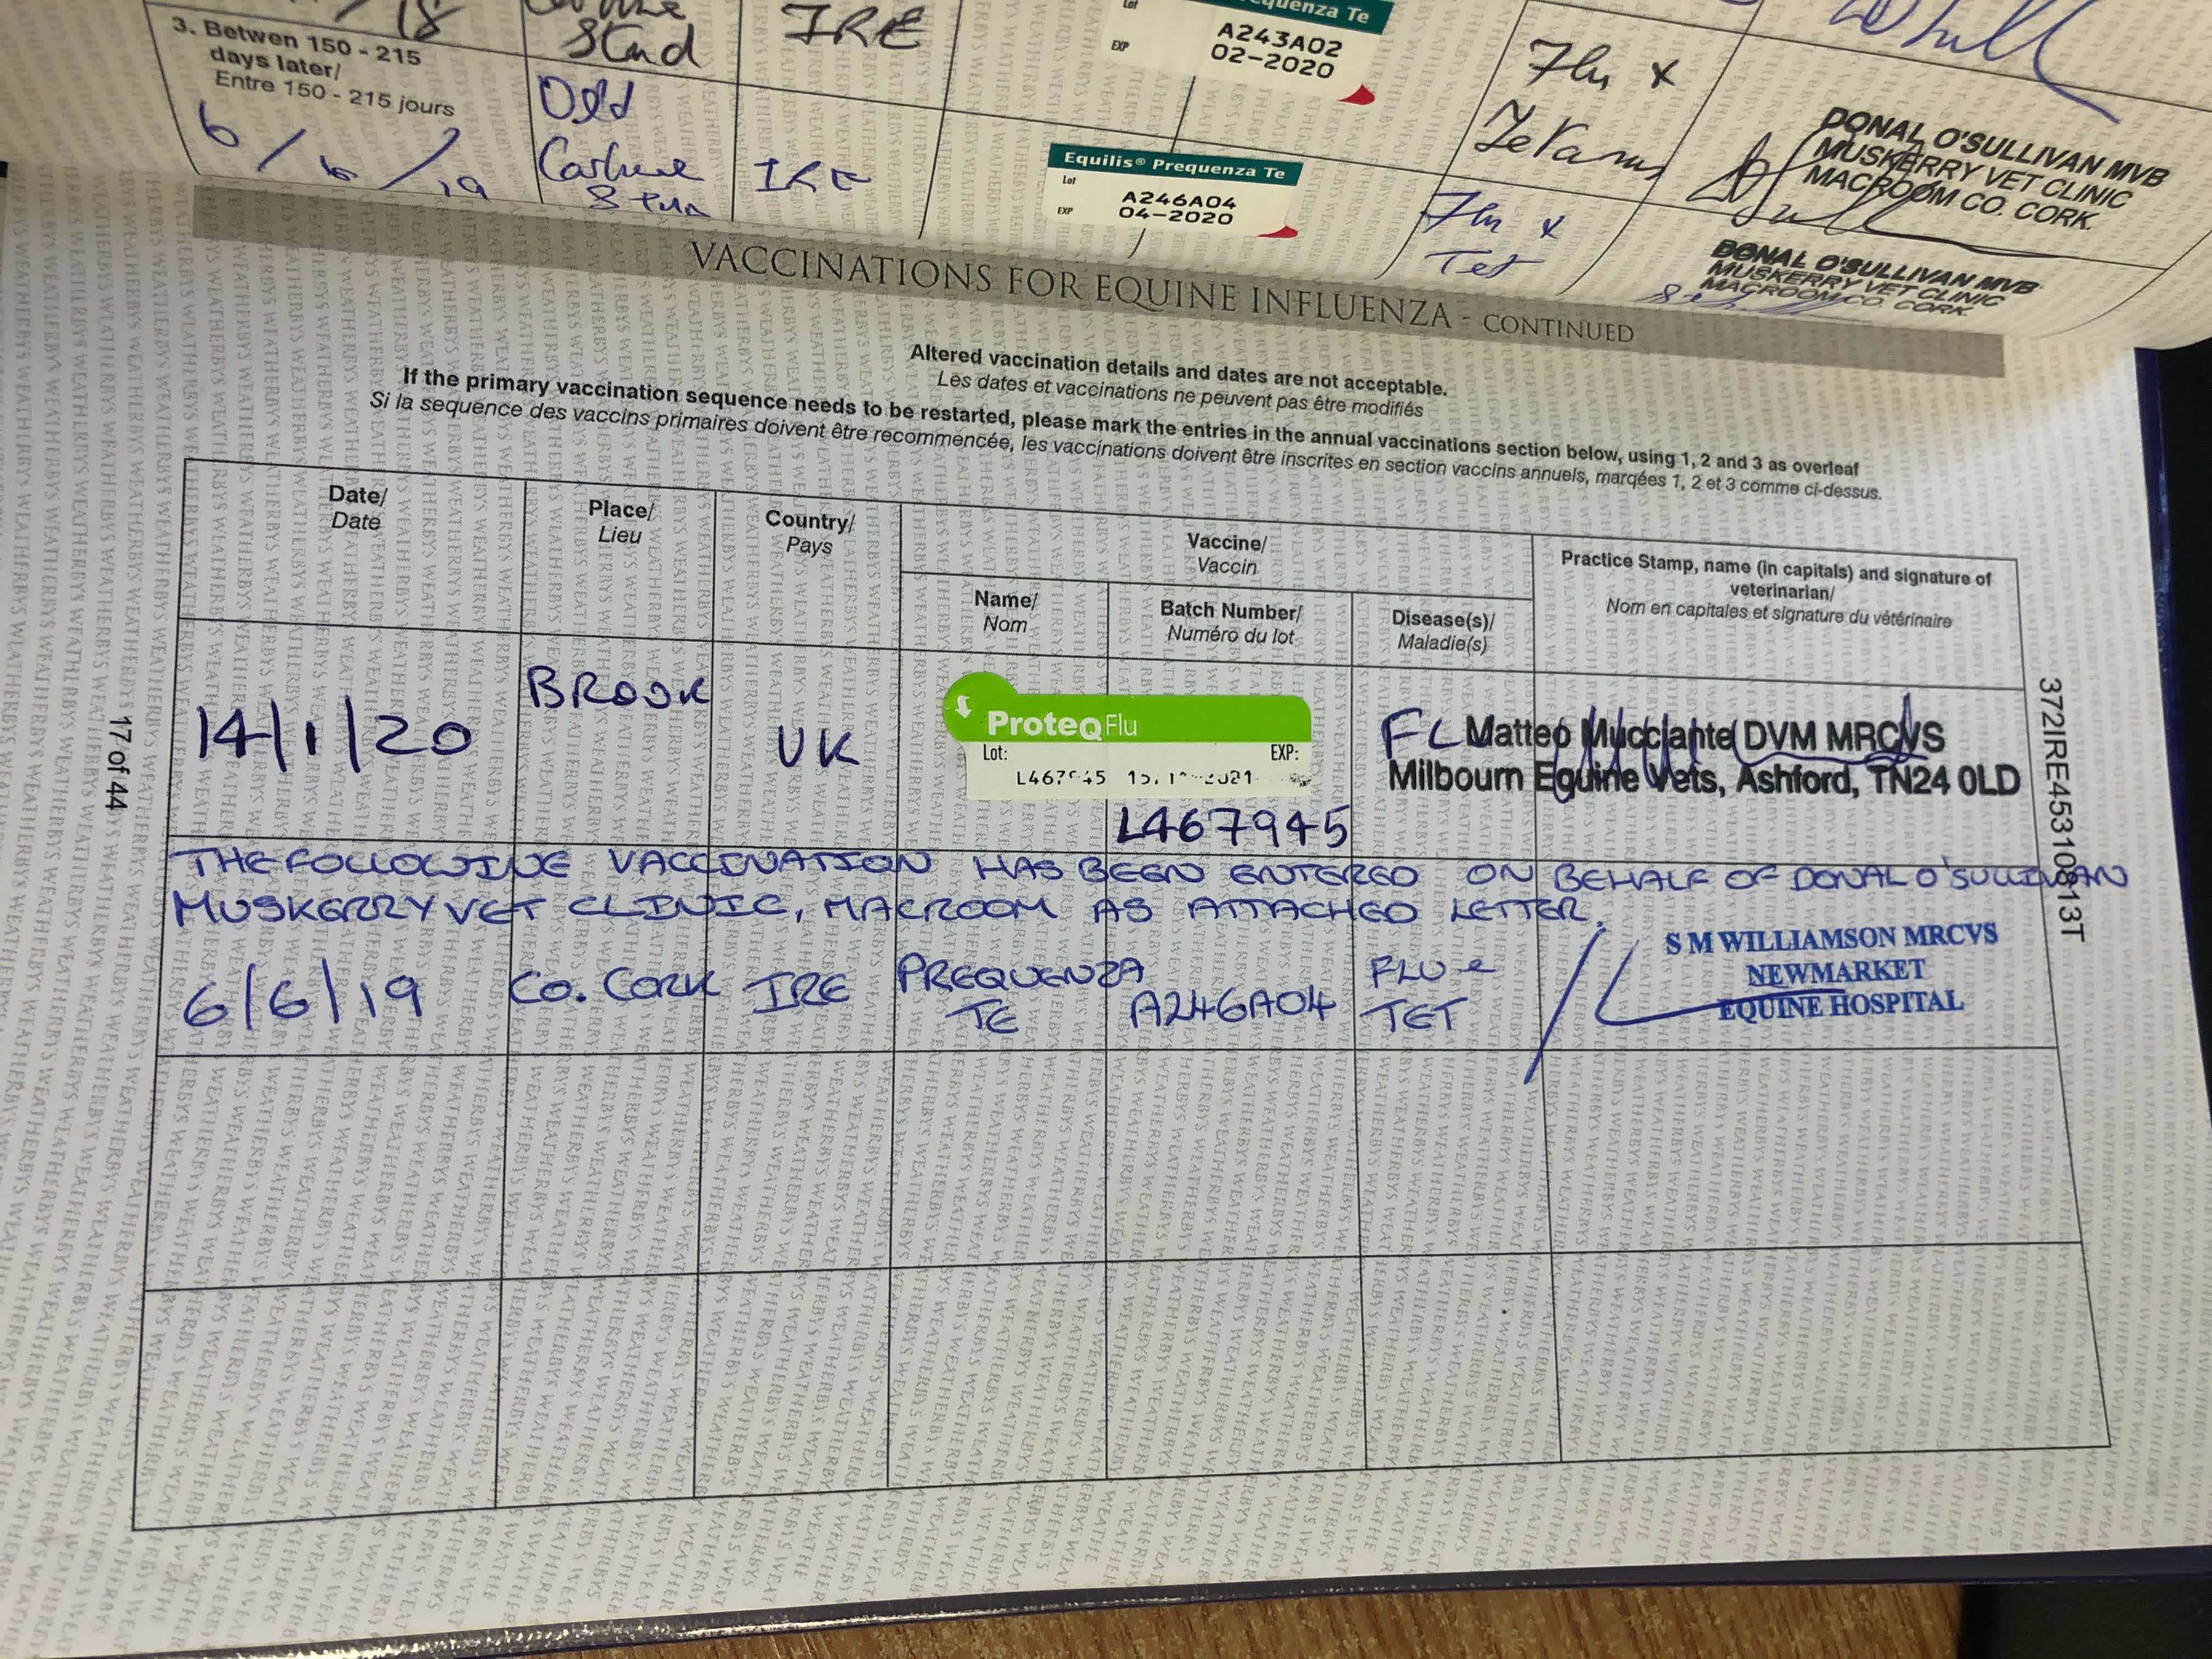 18
Stud
IRE
Prequenza Te
Lot
A243A02
EXP
02-2020
Flu x
Tetanus
DONAL O'SULLIVAN MVB
MUSKERRY VET CLINIC
MACROOM CO. CORK.
3. Betwen 150 - 215
days later/
Entre 150 - 215 jours
6/6/19
Old
Carhue
Stud
IRE
Equilis® Prequenza Te
Lot
A246A04
EXP
04-2020
Flu x
Tet
DONAL O'SULLIVAN MVB
MUSKERRY VET CLINIC
MACROOM CO. CORK.
VACCINATIONS FOR EQUINE INFLUENZA - CONTINUED
Altered vaccination details and dates are not acceptable.
Les dates et vaccinations ne peuvent pas être modifiés
If the primary vaccination sequence needs to be restarted, please mark the entries in the annual vaccinations section below, using 1, 2 and 3 as overleaf
Si la sequence des vaccins primaires doivent être recommencée, les vaccinations doivent être inscrites en section vaccins annuels, marqées 1, 2 et 3 comme ci-dessus.
Date/
Date
Place/
Lieu
Country/
Pays
Vaccine/
Vaccin
Name/
Nom
Batch Number/
Numéro du lot
Disease(s)/
Maladie(s)
Practice Stamp, name (in capitals) and signature of
veterinarian/
Nom en capitales et signature du vétérinaire
14/1/20
BROOK
UK
ProteqFlu
Lot:
EXP:
L467945
FLU
Matteo Mucciante DVM MRCVS
Milbourn Equine Vets, Ashford, TN24 0LD
THE FOLLOWING VACCINATION HAS BEEN ENTERED ON BEHALF OF DONAL O'SULLIVAN
MUSKERRY VET CLINIC, MACROOM AS ATTACHED LETTER.
6/6/19
CO. CORK
IRE
PREQUENZA
TE
A246A04
FLU &
TET
S M WILLIAMSON MRCVS
NEWMARKET
EQUINE HOSPITAL
17 of 44
372IRE453108413T